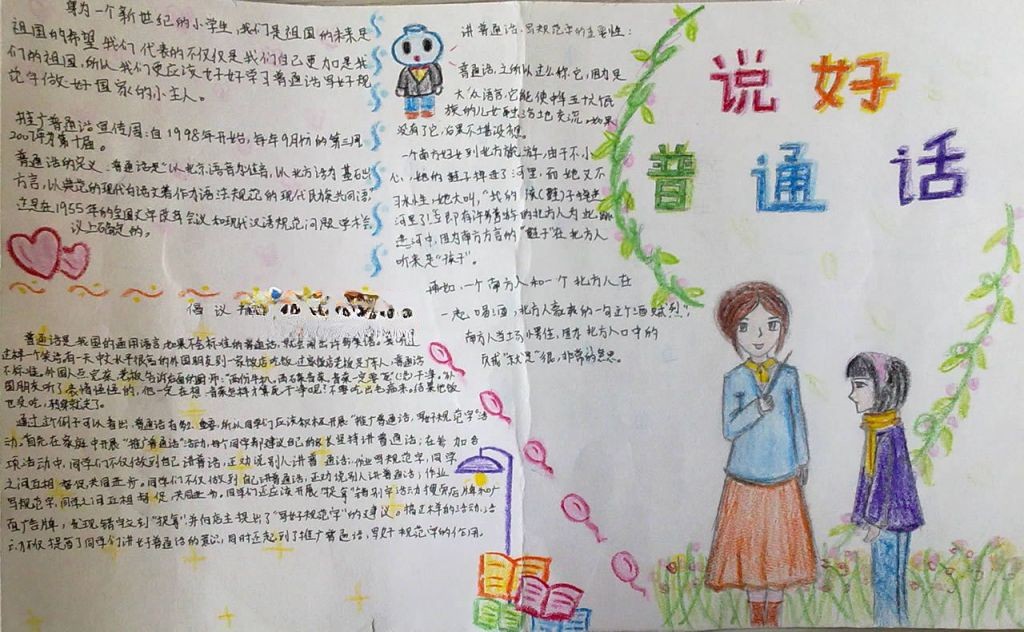 身为一个新世纪的小学生,我们是祖国的未来是
祖国的希望,我们代表的不仅仅是我们自己更加是我
们的祖国,所以我们更应该好好学习普通话写好规
范字做好国家的小主人。
推广普通话宣传周:自1998年开始,每年9月份的第三周
2007年为第十届。
普通话的定义:普通话是"以北京语音为标音,以北方话为基础
方言,以典范的现代白话文著作为语法规范的现代民族共同语"
这是在1955年的全国文字改革会议和现代汉语规范问题学术会
议上确定的。
倡议
普通话是我国的通用语言,如果不会标准的普通话,就会闹出许多笑话。
这样一个笑话:有一天中文水平很高的外国朋友到一家饭店吃饭,这家饭店老板是广东人,普通话
不标准。
国朋友听了
也没吃,转身就走了。
通过这个例子可以看出,普通话有多么重要,所以同学们应该积极开展"推广普通话,写好规范字"活
动。首先在家庭中开展"推广普通话"活动,每个同学都建议自己的家长坚持讲普通话;在参加各
项活动中,同学们不仅做到自己讲普话,还劝说别人讲普通话;作业写规范字,同学
之间互相督促共同进步。同学们不仅做到自己讲普通话,还劝说别人讲普通话;作业
写规范字,同学之间互相督促,共同进步。同学们还应该开展"捉笔"错别字活动搜索店牌和广
面广告牌,发现错字立刻"捉笔"并向店主提出了"写好规范字"的建议。
不仅提高了同学们讲好普通话的意识,同时还起到了推广普通话,写好规范字的作用。
讲普通话,写规范字的重要性:
普通话,之所以这么称它,因为是
大众语言,它能使释五十六个民
族的儿女融洽地交流,如果
没有了它,后果不堪设想。
一个南方妇女到北方旅游,由于不小
心,她的鞋子掉进了河里,而她又不
习水性,她大叫,"我的孩(鞋)子掉进
河里了!
进河中,因为南方方言的"鞋子"在北方人
听来是"孩子"。
再如:一个南方人和一个北方人在
一起喝酒,北方人豪爽的一句这个酒"贼烈!",
南方人当场
"贼"就是"很,非常的意思。
说好
普通话